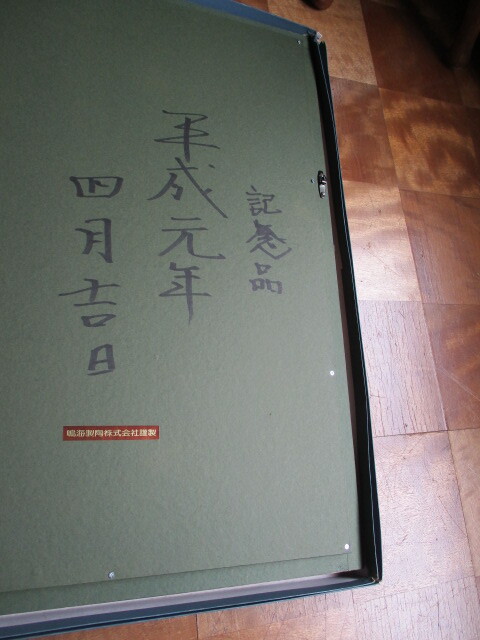 記念品
平成元年
四月吉日
鳴海製陶株式会社謹製